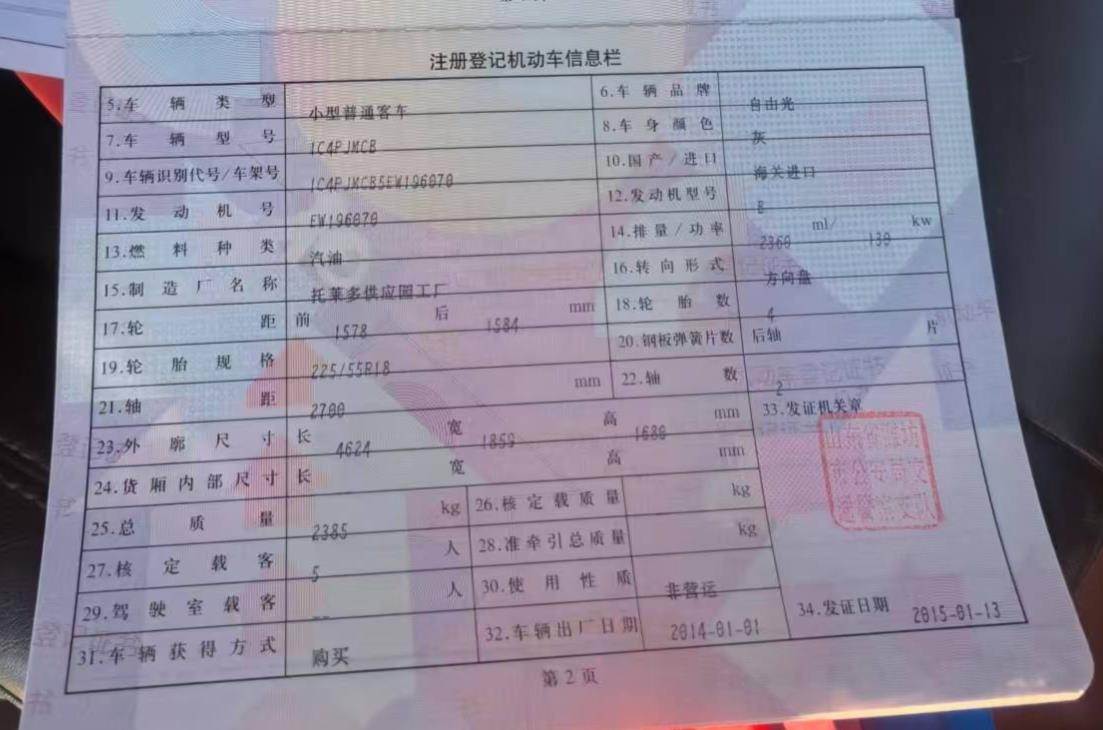 注册登记机动车信息栏
5.车辆类型 小型普通客车 6.车辆品牌 自由光
7.车辆型号 1C4PJMCB 8.车身颜色 灰
9.车辆识别代号/车架号 1C4PJMCB5EW196070 10.国产/进口 海关进口
11.发动机号 EW196070 12.发动机型号
13.燃料种类 汽油 14.排量/功率 2360 ml/ 130 kw
15.制造厂名称 托莱多供应园工厂 16.转向形式 方向盘
17.轮距 前 1578 后 1584 mm 18.轮胎数 4
19.轮胎规格 225/55R18 20.钢板弹簧片数 后轴 片
21.轴距 2700 mm 22.轴数 2
23.外廓尺寸 长 4624 宽 1859 高 1680 mm 33.发证机关章
24.货厢内部尺寸 长 宽 高 mm
山东省潍坊
市公安局交
通警察支队
25.总质量 2385 kg 26.核定载质量 kg
27.核定载客 5 人 28.准牵引总质量 kg
29.驾驶室载客 -- 人 30.使用性质 非营运
31.车辆获得方式 购买 32.车辆出厂日期 2014-01-01 34.发证日期 2015-01-13
第2页